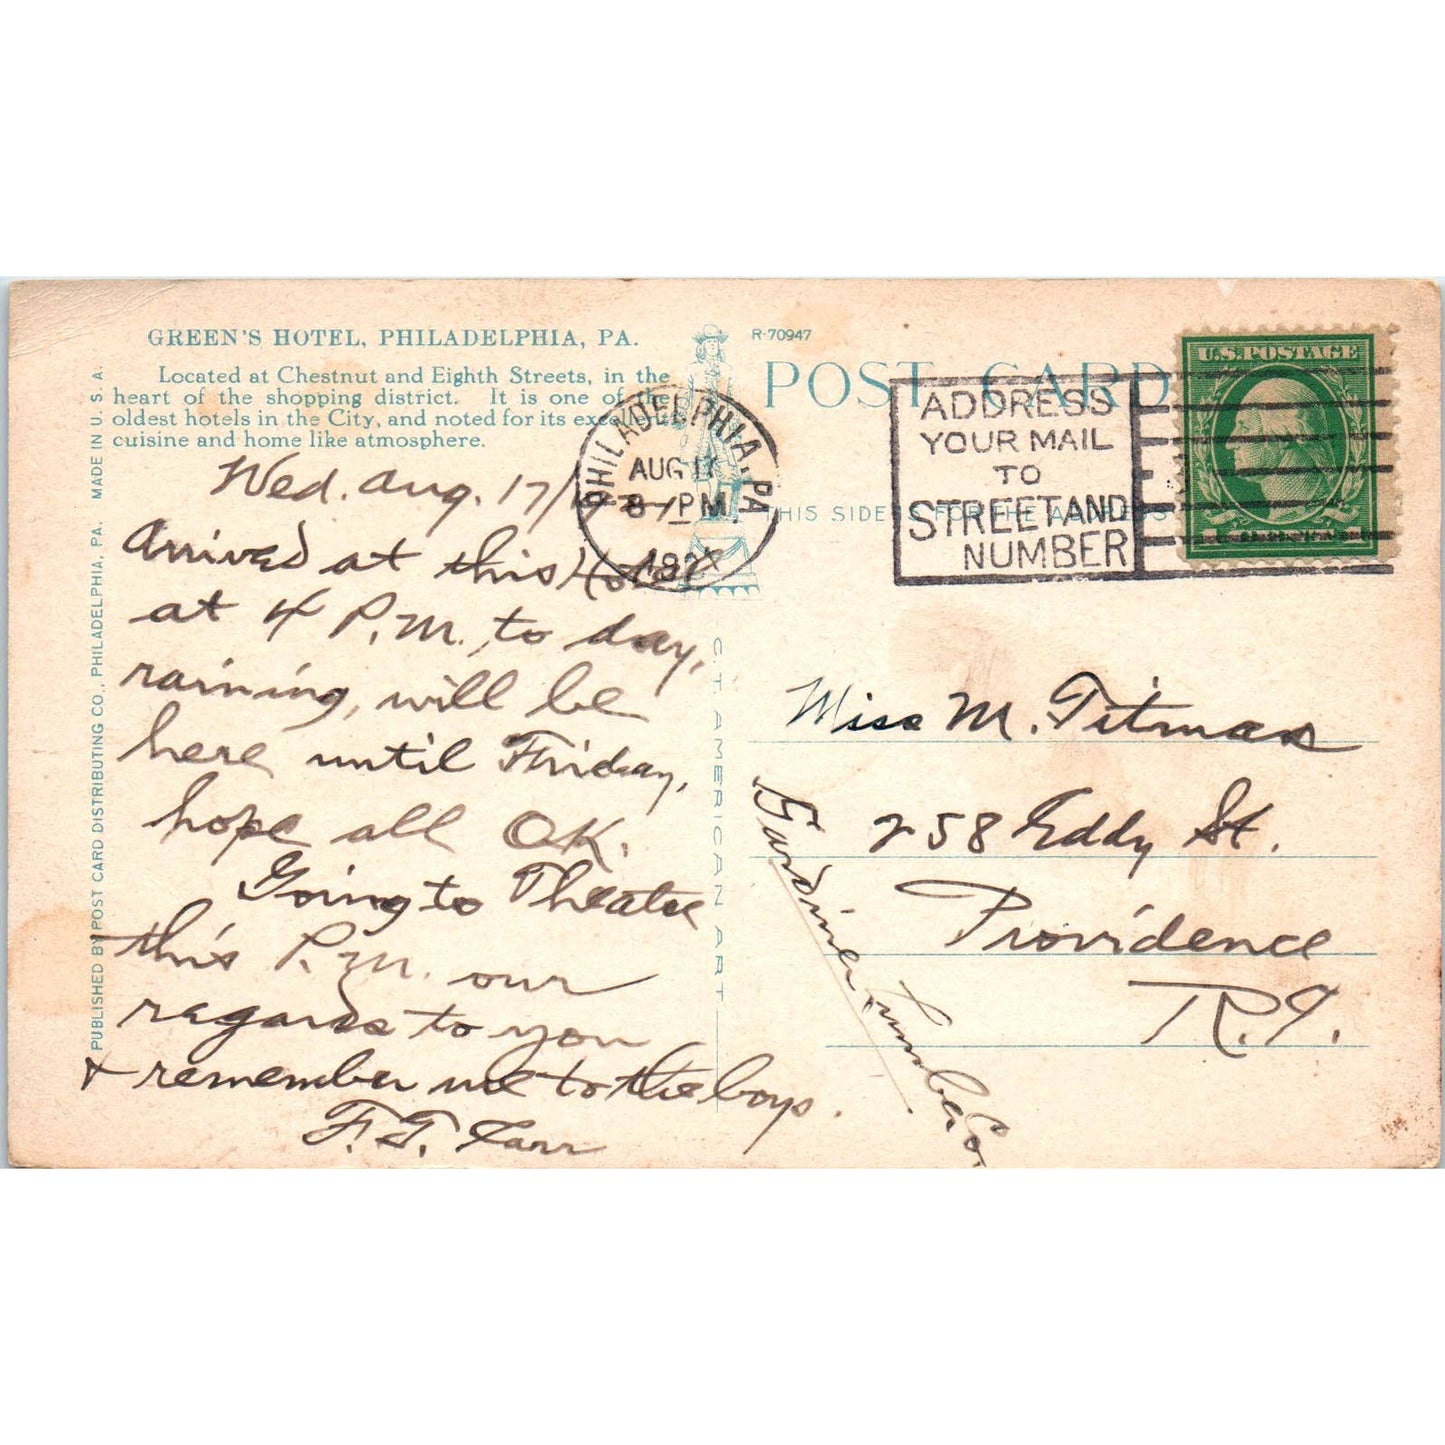 GREEN'S HOTEL, PHILADELPHIA, PA.
Located at Chestnut and Eighth Streets, in the
heart of the shopping district. It is one of the
oldest hotels in the City, and noted for its excellent
cuisine and home like atmosphere.
MADE IN U. S. A.
PUBLISHED BY POST CARD DISTRIBUTING CO., PHILADELPHIA, PA.
Wed. Aug. 17/
Arrived at this Hotel
at 4 P.M. to day,
raining, will be
here until Friday,
hope all OK.
Going to Theatre
this P.M. our
regards to you
& remember me to the boys.
F. T.
C. T. AMERICAN ART
R-70947
POST CARD
THIS SIDE FOR THE ADDRESS
PHILADELPHIA, PA
AUG 17
8 - PM
192
ADDRESS
YOUR MAIL
TO
STREET AND
NUMBER
U.S. POSTAGE
Miss M. Titman
258 Eddy St.
Providence
R.I.
Gardiner Lumber Co.